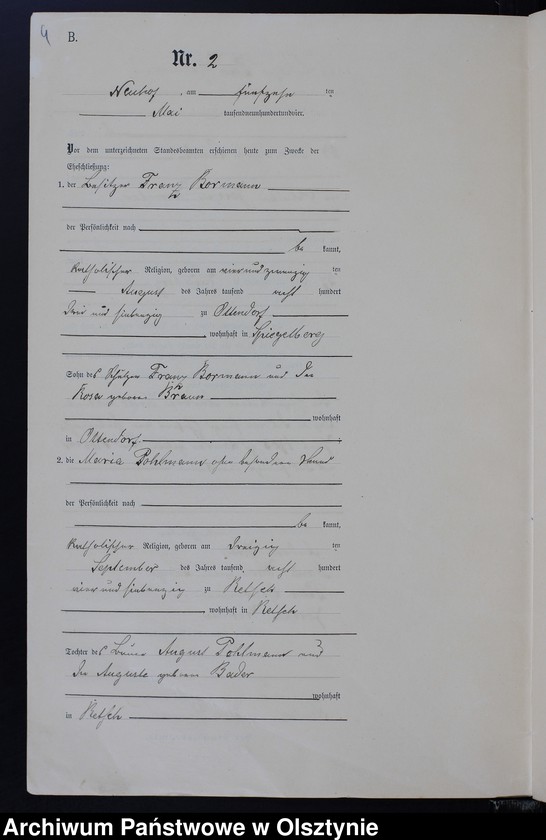 4
B.
Nr. 2
Neuhof, am fünfzehn ten
Mai tausendneunhundertundvier.
Vor dem unterzeichneten Standesbeamten erschienen heute zum Zwecke der
Eheschließung:
1. der Besitzer Franz Bormann
der Persönlichkeit nach
be kannt,
katholischer Religion, geboren am vierundzwanzig ten
August des Jahres tausend acht hundert
drei und siebenzig zu Ottendorf
, wohnhaft in Spiegelberg
Sohn des Franz Bormann und der
Rosa geborene Braun
wohnhaft
in Ottendorf
2. die Maria Pohlmann ohne besonderen Stand
der Persönlichkeit nach
be kannt,
katholischer Religion, geboren am dreizig ten
September des Jahres tausend acht hundert
vier und siebenzig zu Retsch
, wohnhaft in Retsch
Tochter des Bauer August Pohlmann und
der Auguste geborene Bader
wohnhaft
in Retsch
Archiwum Państwowe w Olsztynie